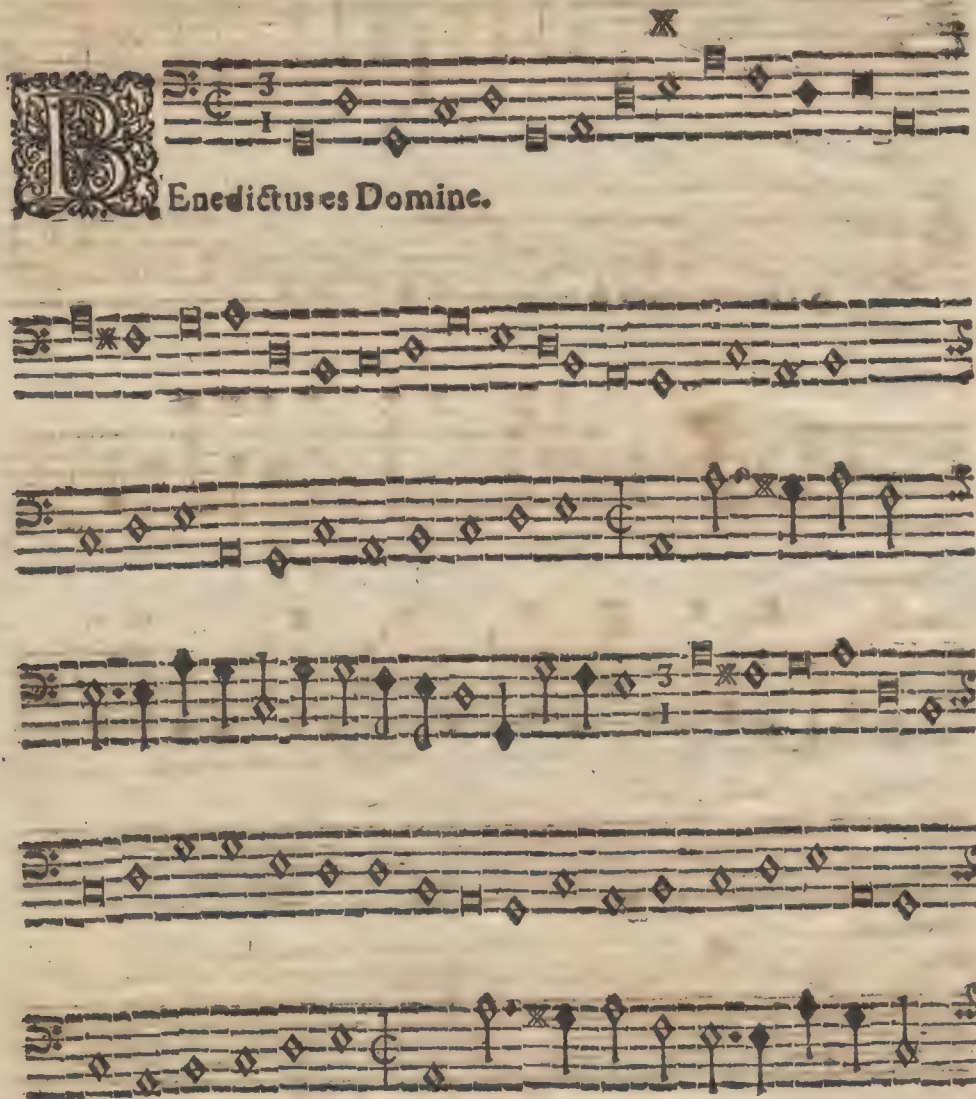 BEnedictus es Domine.